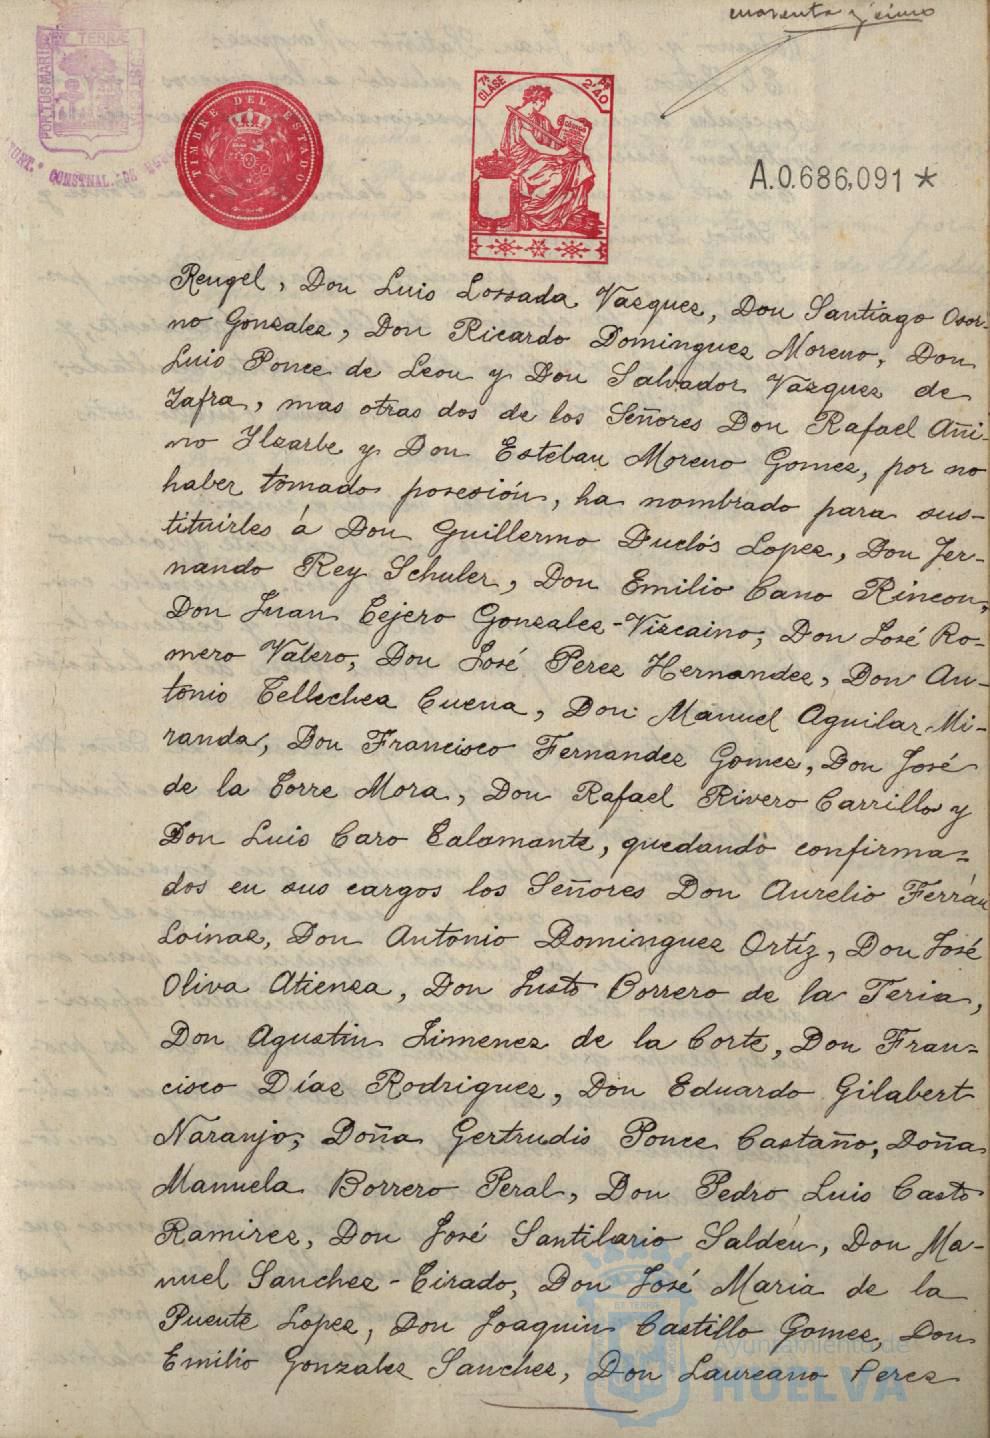 cuarenta y cinco
PORTUS MARIS ET TERRÆ CUSTODIA
CONSTNAL. DE
TIMBRE DEL ESTADO
7ª CLASE
Pts 2'40
A.0.686,091 *
Rengel, Don Luis Lossada Vazquez, Don Santiago Osor-
no Gonzalez, Don Ricardo Dominguez Moreno, Don
Luis Ponce de Leon y Don Salvador Vazquez de
Zafra, mas otras dos de los Señores Don Rafael Añi-
no Ilzarbe y Don Esteban Moreno Gomez, por no
haber tomado posesión, ha nombrado para sus-
tituirles á Don Guillermo Duclós Lopez, Don Fer-
nando Rey Schuler, Don Emilio Cano Rincon,
Don Juan Tejero Gonzalez-Vizcaino, Don José Ro-
mero Valero, Don José Perez Hernandez, Don An-
tonio Tellechea Cuena, Don Manuel Aguilar Mi-
randa, Don Francisco Fernandez Gomez, Don José
de la Torre Mora, Don Rafael Rivero Carrillo y
Don Luis Caro Talamante, quedando confirma-
dos en sus cargos los Señores Don Aurelio Ferrán
Loinaz, Don Antonio Dominguez Ortíz, Don José
Oliva Atienza, Don Justo Borrero de la Feria,
Don Agustin Jimenez de la Corte, Don Fran-
cisco Díaz Rodriguez, Don Eduardo Gilabert
Naranjo, Doña Gertrudis Ponce Castaño, Doña
Manuela Borrero Peral, Don Pedro Luis Casto
Ramirez, Don José Santilario Saldén, Don Ma-
nuel Sanchez-Tirado, Don José Maria de la
Puente Lopez, Don Joaquin Castillo Gomez, Don
Emilio Gonzalez Sanchez, Don Laureano Perez
Ayuntamiento de
HUELVA